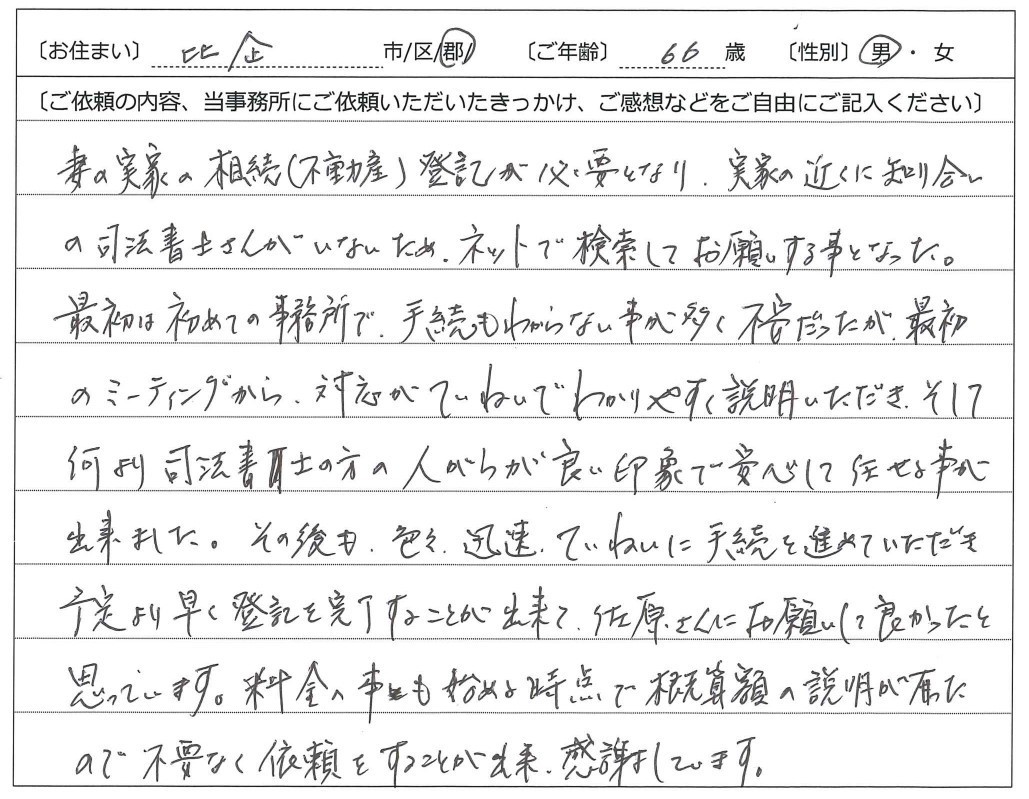 〔お住まい〕 比企 市/区/郡/ 〔ご年齢〕 66 歳 〔性別〕 男・女
〔ご依頼の内容、当事務所にご依頼いただいたきっかけ、ご感想などをご自由にご記入ください〕
妻の実家の相続(不動産)登記が必要となり、実家の近くに知り合い
の司法書士さんがいないため、ネットで検索してお願いする事となった。
最初は初めての事務所で、手続もわからない事が多く不安だったが、最初
のミーティングから、対応がていねいでわかりやすく説明いただき、そして
何より司法書士の方の人がらが良い印象で安心して任せる事が
出来ました。その後も、色々、迅速、ていねいに手続を進めていただき
予定より早く登記を完了することが出来て、佐原さんにお願いして良かったと
思っています。料金の事も始める時点で概算額の説明が有った
ので不要なく依頼をすることが出来、感謝しています。